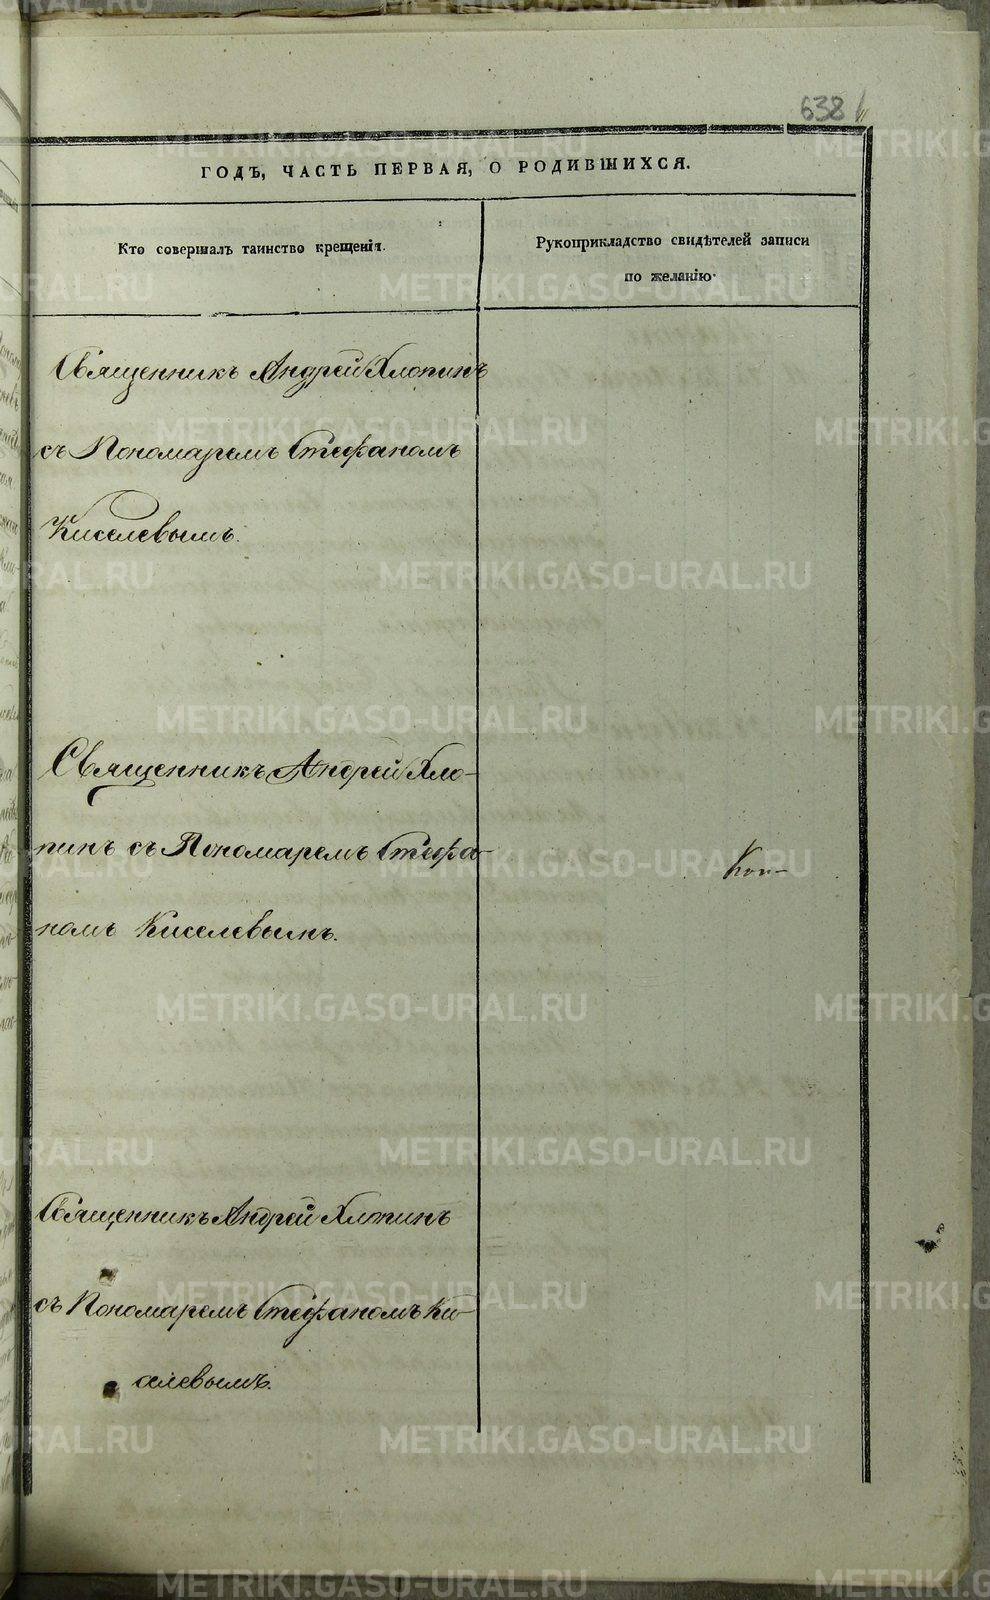 638
ГОДЪ, ЧАСТЬ ПЕРВАЯ, О РОДИВШИХСЯ.
Кто совершалъ таинство крещенія.
Рукоприкладство свидѣтелей записи
по желанію.
Священникъ Андрей Хлопинъ
съ Пономаремъ Стефаномъ
Киселевымъ.
Священникъ Андрей Хло-
пинъ съ Пономаремъ Стефа-
номъ Киселевымъ.
Кон-
Священникъ Андрей Хлопинъ
съ Пономаремъ Стефаномъ Ки-
селевымъ.
METRIKI.GASO-URAL.RU